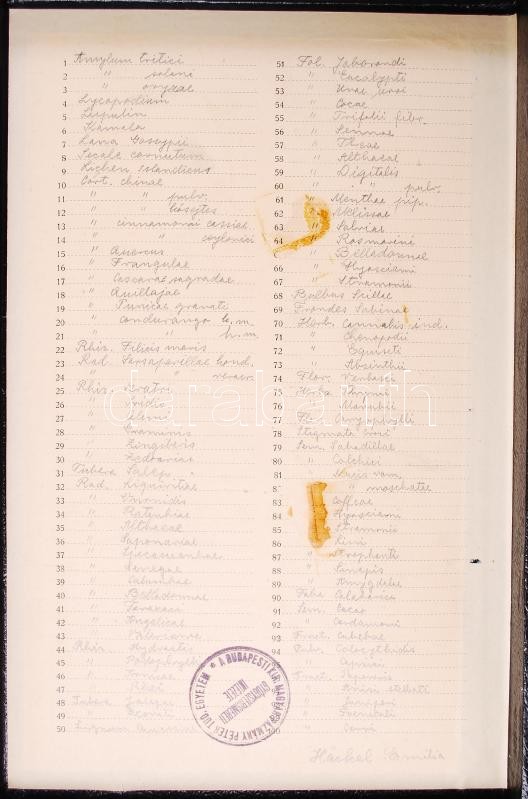 1 Amylum tritici
2 " solani
3 " oryzae
4 Lycopodium
5 Lupulin
6 Kamala
7 Lana Gossypii
8 Secale cornutum
9 Lichen Islandicus
10 Cort. chinae
11 " " pulv.
12 " "
13 " cinnamomi cassiae
14 " " ceylonici
15 " Quercus
16 " Frangulae
17 " Cascarae sagradae
18 " Quillajae
19 " Punicae granati
20 " Condurango
21 " "
22 Rhiz. Filicis maris
23 Rad. Sarsaparillae hond.
24 " "
25 Rhiz. Veratri
26 " Iridis
27 "
28 " Graminis
29 " Zingiberis
30 " Zedoariae
31 Tubera Salep
32 Rad. Liquiritiae
33 " Ononidis
34 " Ratanhiae
35 " Althaeae
36 " Saponariae
37 " Ipecacuanhae
38 " Senegae
39 " Columbae
40 " Belladonnae
41 " Taraxaci
42 " Angelicae
43 " Valerianae
44 Rhiz. Hydrastis
45 " Podophylli
46 "
47 " Rhei
48 Tubera Jalapae
49 " Aconiti
50 Lignum
51 Fol. Jaborandi
52 " Eucalypti
53 " Uvae ursi
54 " Cocae
55 " Trifolii fibr.
56 " Sennae
57 " Theae
58 " Althaeae
59 " Digitalis
60 " " pulv.
61 " Menthae pip.
62 " Melissae
63 " Salviae
64 " Rosmarini
65 " Belladonnae
66 " Hyosciami
67 " Stramonii
68 Bulbus Scillae
69 Frondes Sabinae
70 Herb. Cannabis ind.
71 " Chenopodii
72 " Equiseti
73 " Absinthii
74 Flor. Verbasci
75 Herba
76 "
77 Fl. Caryophylli
78 Stigmata Croci
79 Sem. Sabadillae
80 " Colchici
81 " Nucis vom.
8 " " moschatae
83 Coffeae
84 Hyosciami
85 Stramonii
86 " Ricini
87 " Strophanti
88 " Sinapis
89 " Amygdalae
90 Faba Calabarica
91 Sem. Cacao
92 " Cardamomi
93 Fruct. Cubebae
94 Colocynthidis
" Capsici
Fruct. Papaveris
" Anisi stellati
" Juniperi
" Foeniculi
100 " Carvi
A BUDAPESTI KIR. MAGYAR PÁZMÁNY PÉTER TUD. EGYETEM
GYÓGYSZERISMERETI
INTÉZETE
Häckel Emilia
darabanth